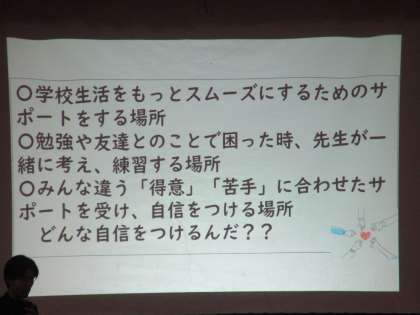 ○学校生活をもっとスムーズにするためのサ
ポートをする場所
○勉強や友達とのことで困った時、先生が一
緒に考え、練習する場所
○みんな違う「得意」「苦手」に合わせたサ
ポートを受け、自信をつける場所
どんな自信をつけるんだ？？